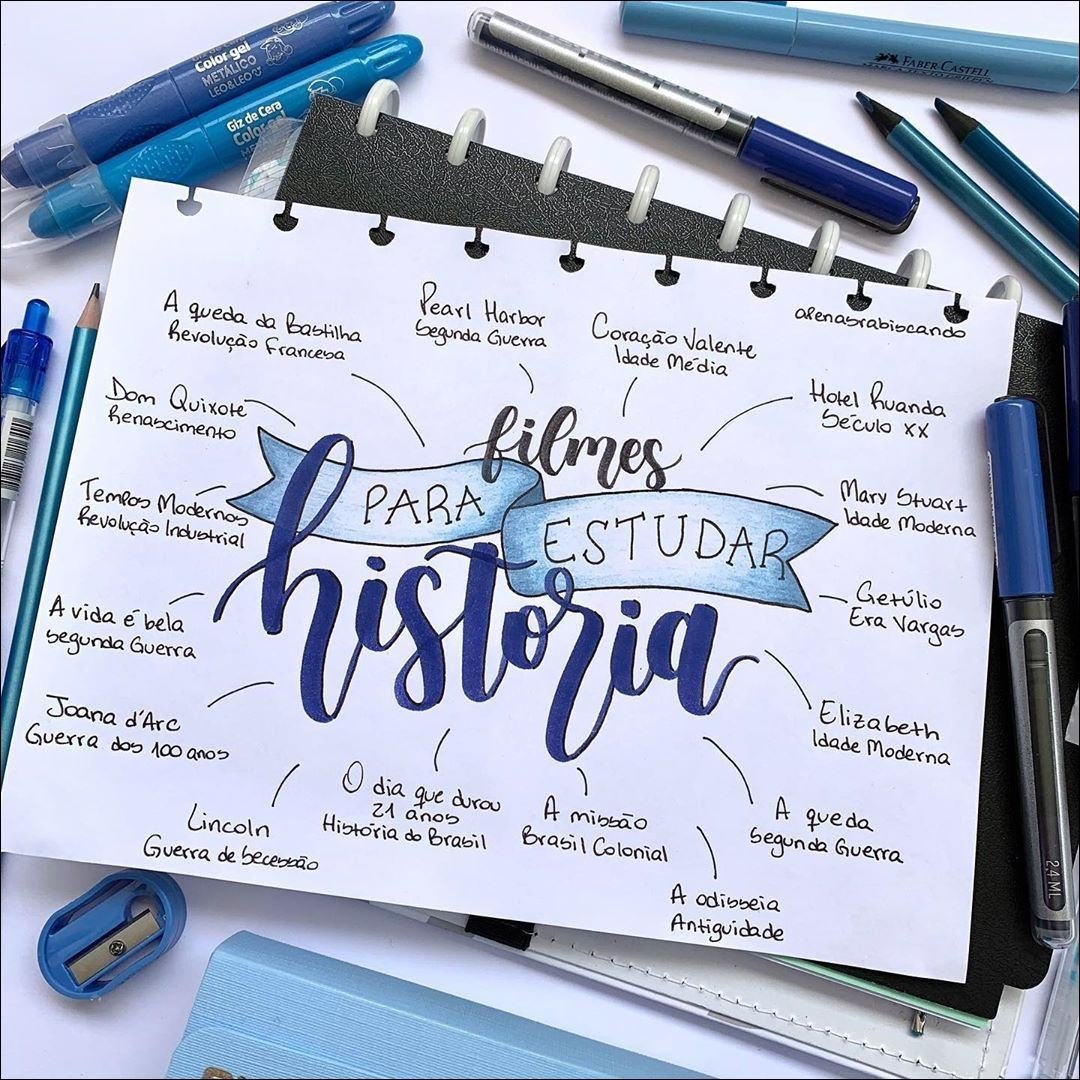 Color gel
METÁLICO
LEO&LEO
Giz de Cera
Color gel
FABER CASTELL
apenasrabiscando
A queda da Bastilha
Revolução Francesa
Pearl Harbor
Segunda Guerra
Coração Valente
Idade Média
Hotel Ruanda
Século XX
Dom Quixote
Renascimento
filmes
PARA ESTUDAR
história
Tempos Modernos
Revolução Industrial
Mary Stuart
Idade Moderna
A vida é bela
Segunda Guerra
Getúlio
Era Vargas
Joana d'Arc
Guerra dos 100 anos
Elizabeth
Idade Moderna
Lincoln
Guerra de Secessão
O dia que durou
21 anos
História do Brasil
A missão
Brasil Colonial
A queda
Segunda Guerra
A odisseia
Antiguidade
2,4 ML